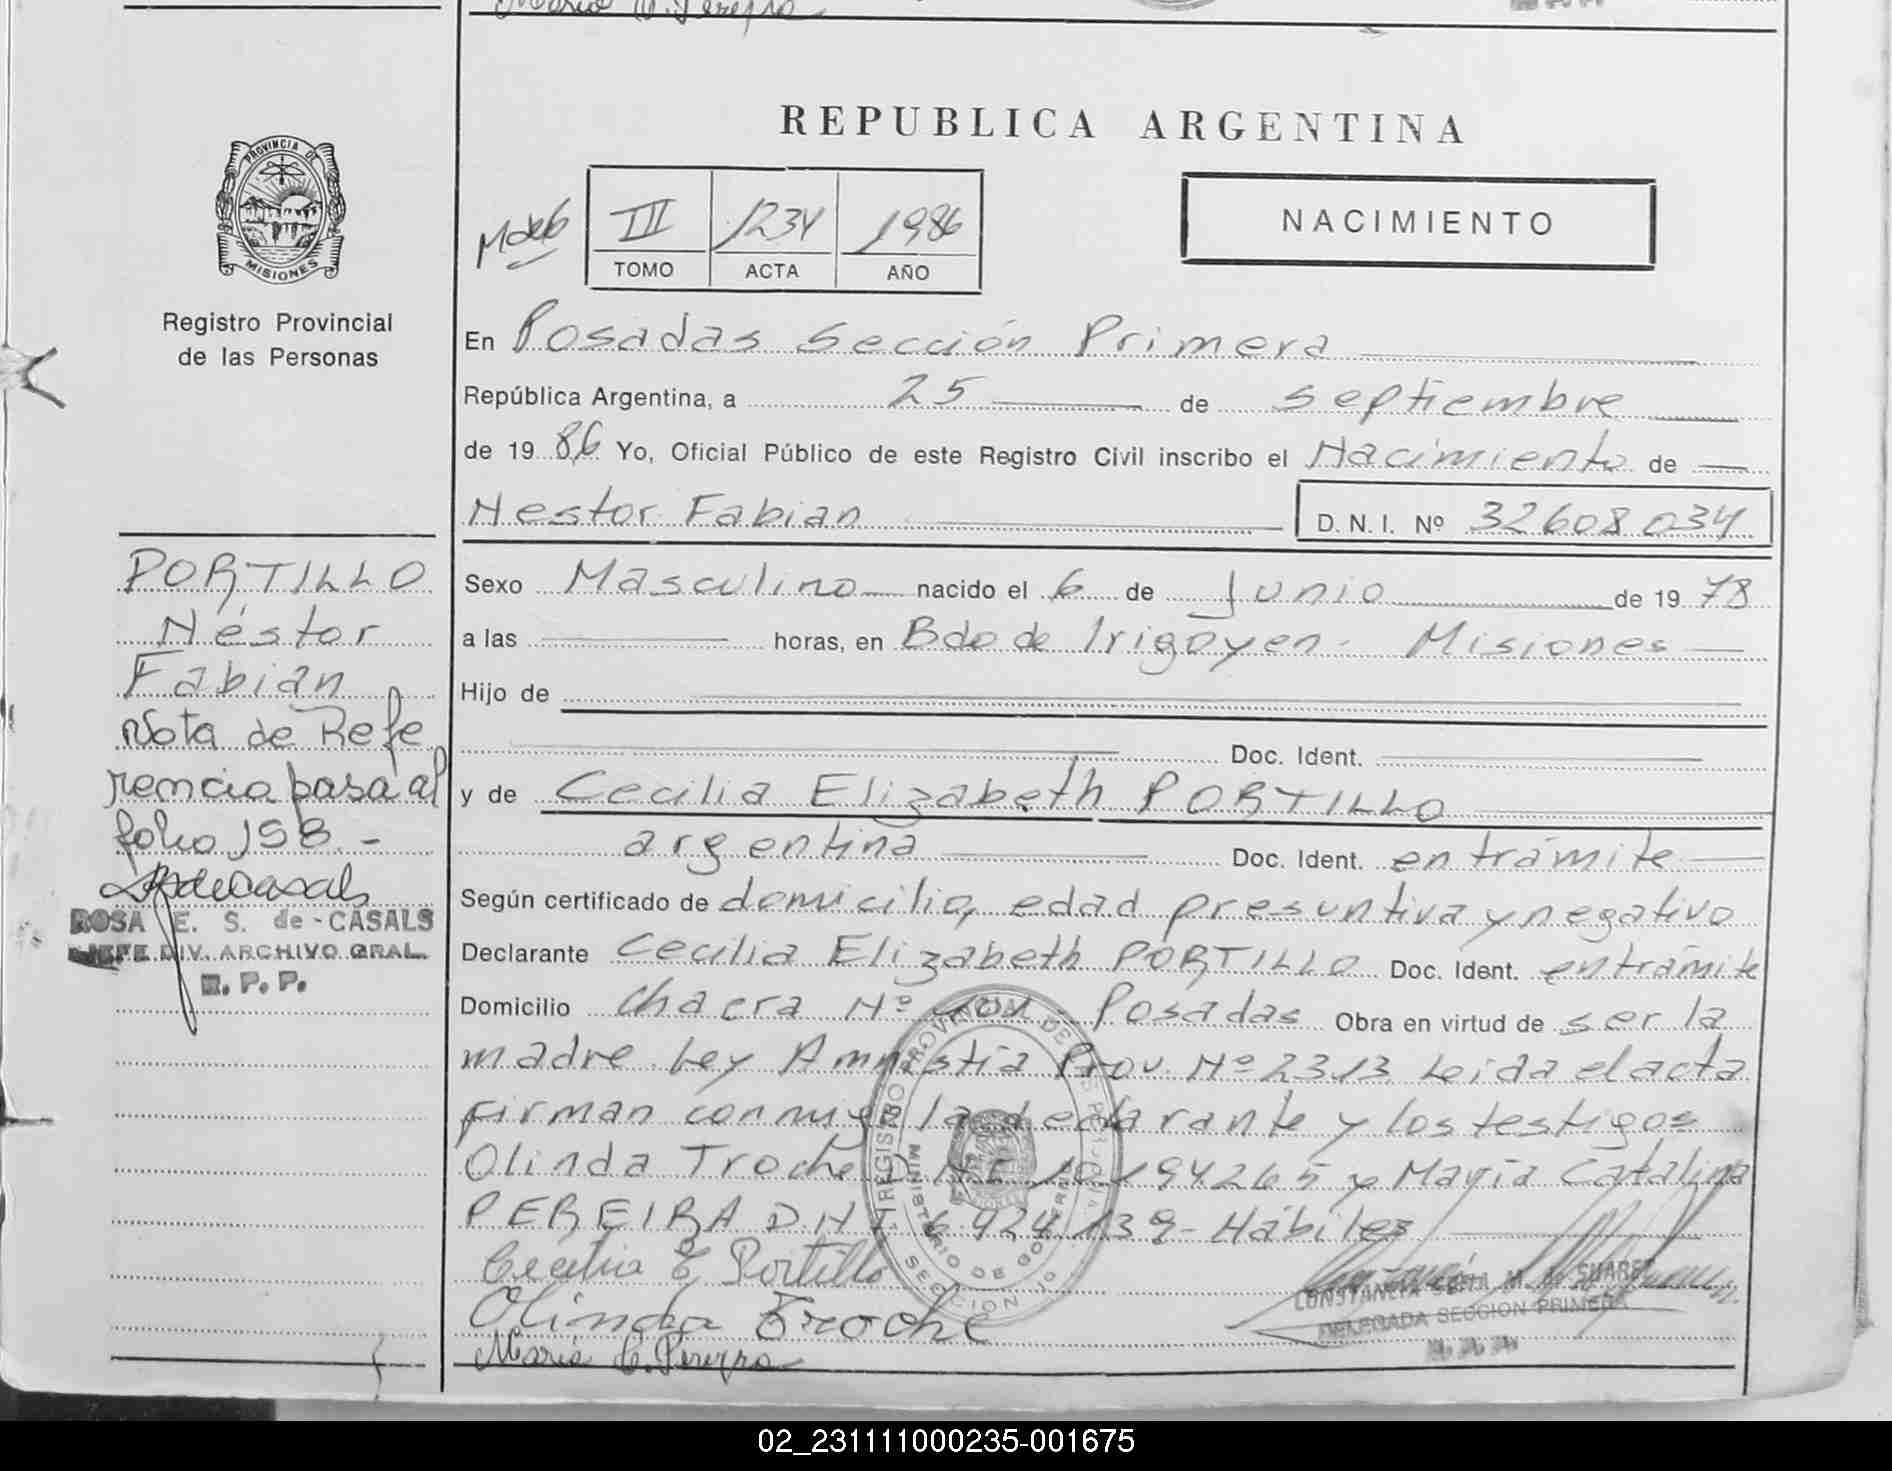 REPUBLICA ARGENTINA
PROVINCIA DE
MISIONES
Registro Provincial
de las Personas
III 1234 1986
TOMO ACTA AÑO
NACIMIENTO
En Posadas Sección Primera
República Argentina, a 25 de septiembre
de 1986 Yo, Oficial Público de este Registro Civil inscribo el Nacimiento de
Nestor Fabian D. N. I. Nº 32608034
Sexo Masculino nacido el 6 de Junio de 1978
a las horas, en Bdo de Irigoyen - Misiones
Hijo de
Doc. Ident.
y de Cecilia Elizabeth PORTILLO
argentina Doc. Ident. en trámite
Según certificado de domicilio, edad presuntiva y negativo
Declarante Cecilia Elizabeth PORTILLO Doc. Ident. en trámite
Domicilio Chacra Nº Posadas Obra en virtud de ser la
madre. Ley Amnistía Prov. Nº 2313 Leida el acta
firman conmigo la declarante y los testigos
Olinda Troche 10.194265 y María Catalina
PEREIRA D.N.I 6.924.139 - Hábiles
Cecilia E Portillo
Olinda Troche
Maria C. Pereyra
CONSTANCIA M. de SUAREZ
DELEGADA SECCION PRIMERA
REGISTRO PROVINCIAL DE LAS PERSONAS
MINISTERIO DE GOBIERNO
SECCION
PORTILLO
Néstor
Fabián
Nota de Refe
rencia pasa al
folio 158.-
ROSA E. S. de-CASALS
JEFE DIV. ARCHIVO GRAL.
R. P. P.
02_231111000235-001675